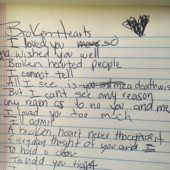 Broken Hearts
I loved you so
and wished you well
A Broken hearted people
I cannot tell
All I see is a deathwish
But I can't see any reason
any reason as to no you and me
I loved you too much
I admit
A broken heart never
Everyday thought of you and I
To hold u close
To hold you tight